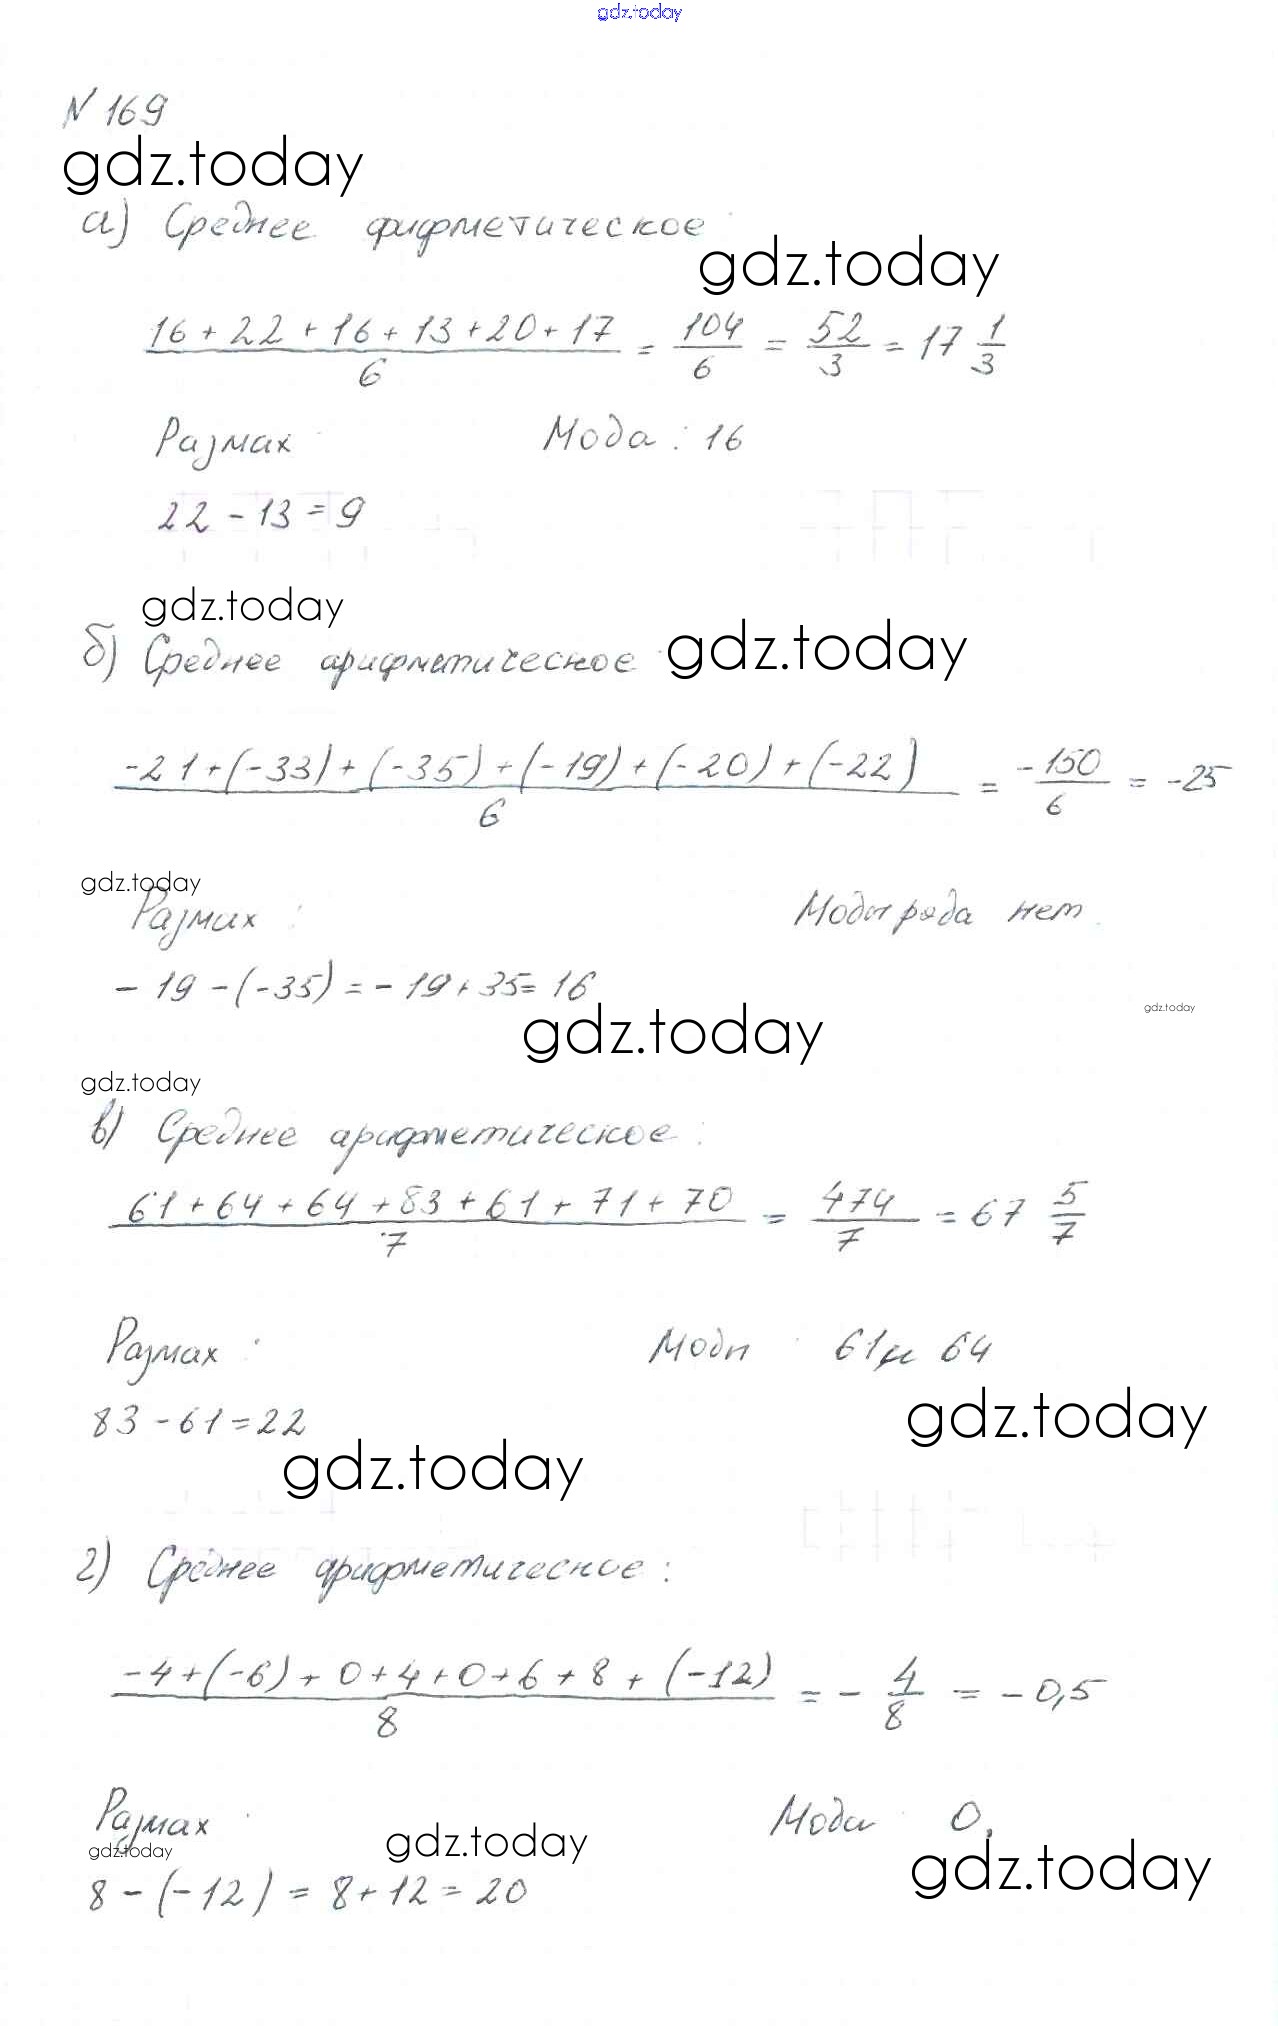 gdz.today
N 169
gdz.today
а) Среднее арифметическое
gdz.today
16 + 22 + 16 + 13 + 20 + 17 / 6 = 104 / 6 = 52 / 3 = 17 1/3
Размах Мода : 16
22 - 13 = 9
gdz.today
б) Среднее арифметическое gdz.today
-21 + (-33) + (-35) + (-19) + (-20) + (-22) / 6 = -150 / 6 = -25
gdz.today
Размах : Моды ряда нет.
- 19 - (-35) = - 19 + 35 = 16
gdz.today
gdz.today
gdz.today
в) Среднее арифметическое :
61 + 64 + 64 + 83 + 61 + 71 + 70 / 7 = 474 / 7 = 67 5/7
Размах : Моды 61 и 64
83 - 61 = 22
gdz.today
gdz.today
г) Среднее арифметическое :
-4 + (-6) + 0 + 4 + 0 + 6 + 8 + (-12) / 8 = - 4/8 = - 0,5
Размах : Мода 0,
gdz.today
gdz.today
gdz.today
8 - (-12) = 8 + 12 = 20